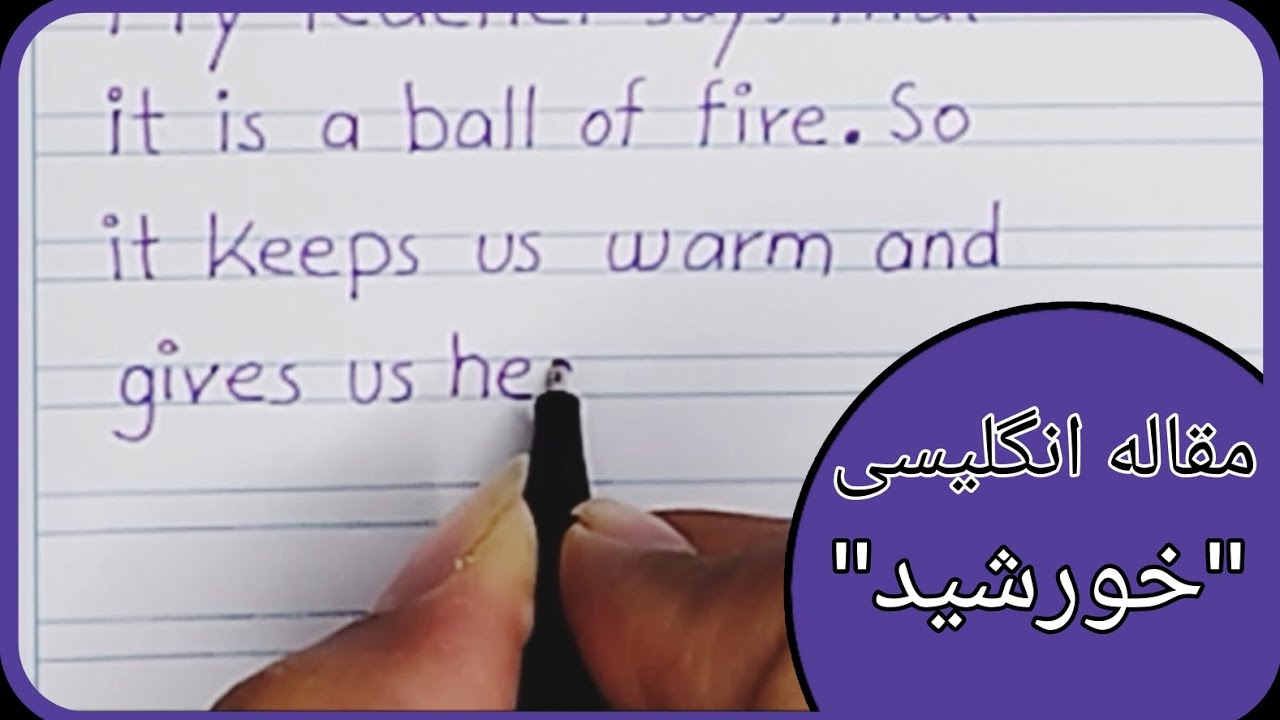 My teacher says that
it is a ball of fire. So
it keeps us warm and
gives us he
مقاله انگلیسی
"خورشید"